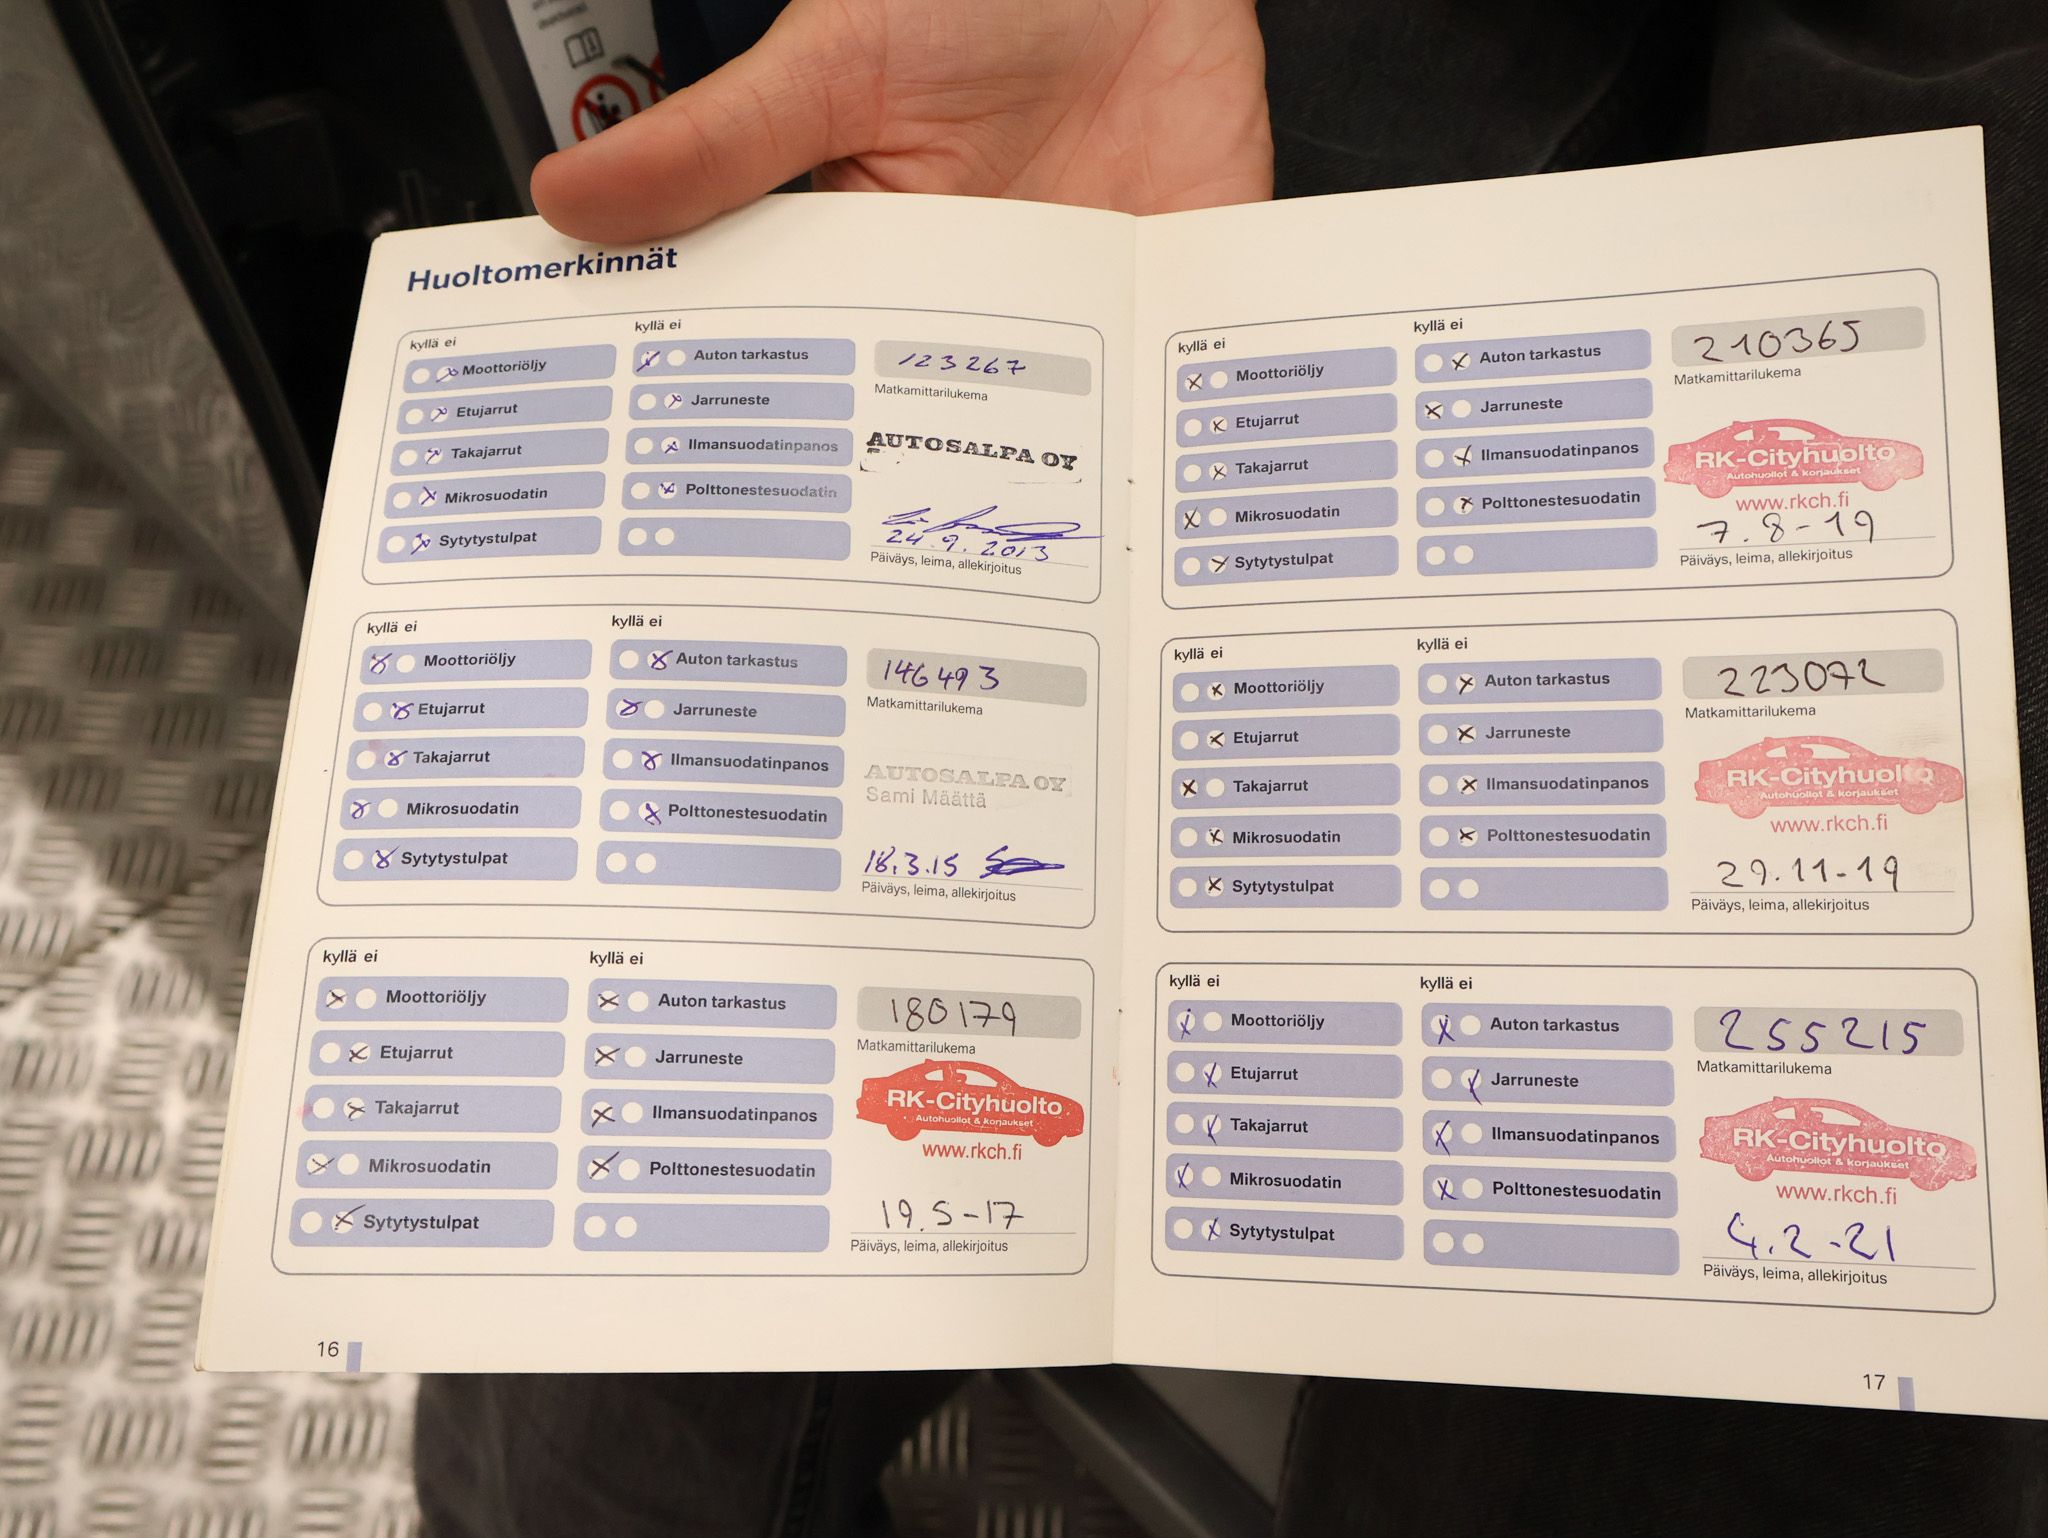 Huoltomerkinnät
kyllä ei
kyllä ei
Moottoriöljy
Auton tarkastus
123267
Etujarrut
Jarruneste
Matkamittarilukema
Takajarrut
Ilmansuodatinpanos
AUTOSALPA OY
Mikrosuodatin
Polttonestesuodatin
Sytytystulpat
24.9.2013
Päiväys, leima, allekirjoitus
kyllä ei
kyllä ei
Moottoriöljy
Auton tarkastus
146493
Etujarrut
Jarruneste
Matkamittarilukema
Takajarrut
Ilmansuodatinpanos
AUTOSALPA OY
Sami Määttä
Mikrosuodatin
Polttonestesuodatin
Sytytystulpat
18.3.15
Päiväys, leima, allekirjoitus
kyllä ei
kyllä ei
Moottoriöljy
Auton tarkastus
180179
Etujarrut
Jarruneste
Matkamittarilukema
Takajarrut
Ilmansuodatinpanos
RK-Cityhuolto
Autohuollot & korjaukset
www.rkch.fi
Mikrosuodatin
Polttonestesuodatin
Sytytystulpat
19.5-17
Päiväys, leima, allekirjoitus
16
kyllä ei
kyllä ei
Moottoriöljy
Auton tarkastus
210365
Etujarrut
Jarruneste
Matkamittarilukema
Takajarrut
Ilmansuodatinpanos
RK-Cityhuolto
Autohuollot & korjaukset
www.rkch.fi
Mikrosuodatin
Polttonestesuodatin
Sytytystulpat
7.8-19
Päiväys, leima, allekirjoitus
kyllä ei
kyllä ei
Moottoriöljy
Auton tarkastus
223072
Etujarrut
Jarruneste
Matkamittarilukema
Takajarrut
Ilmansuodatinpanos
RK-Cityhuolto
Autohuollot & korjaukset
www.rkch.fi
Mikrosuodatin
Polttonestesuodatin
Sytytystulpat
29.11-19
Päiväys, leima, allekirjoitus
kyllä ei
kyllä ei
Moottoriöljy
Auton tarkastus
255215
Etujarrut
Jarruneste
Matkamittarilukema
Takajarrut
Ilmansuodatinpanos
RK-Cityhuolto
Autohuollot & korjaukset
www.rkch.fi
Mikrosuodatin
Polttonestesuodatin
Sytytystulpat
4.2-21
Päiväys, leima, allekirjoitus
17